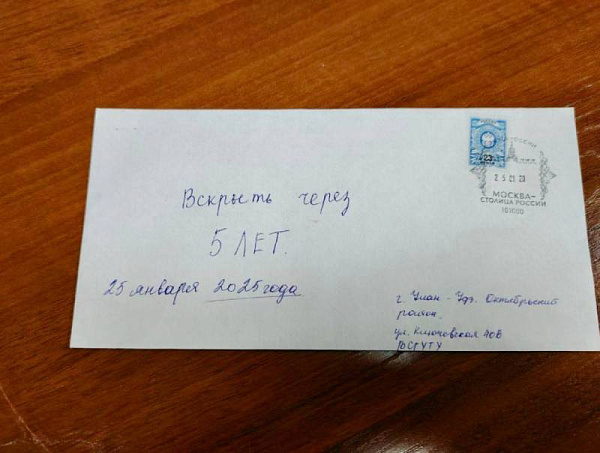 23
25 01 20
МОСКВА-
СТОЛИЦА РОССИИ
101000
Вскрыть через
5 ЛЕТ.
25 января 2025 года
г. Улан-Удэ. Октябрьский
район.
ул. Ключевская 40В
ВСГУТУ